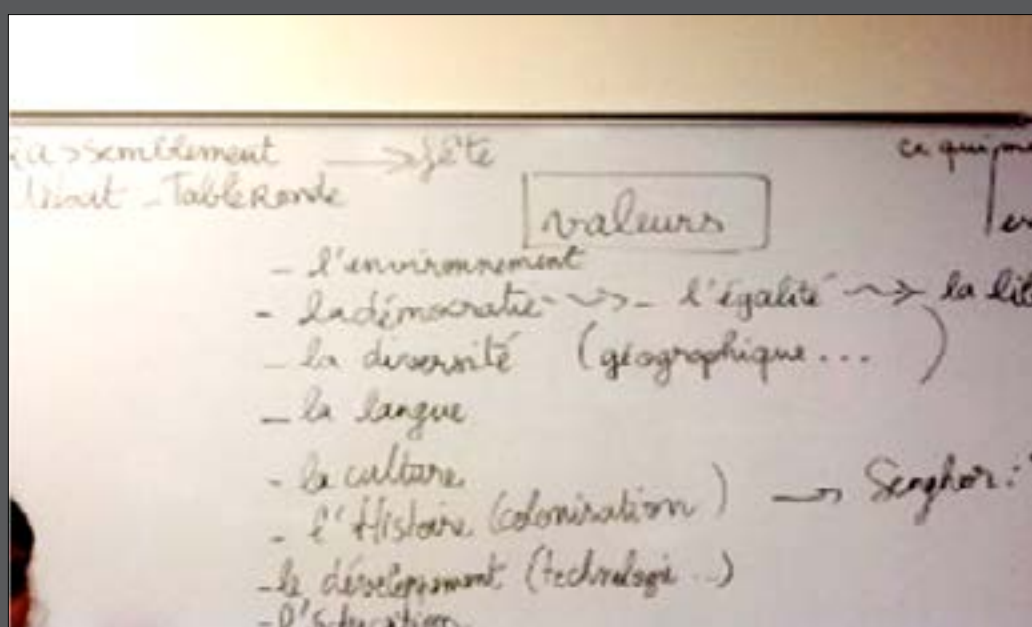 Rassemblement → fête
ce qui me
Débat - Table Ronde
valeurs
- l'environnement
- la démocratie ⇝ - l'égalité ⇝ la lib
- la diversité (géographique... )
- la langue
- la culture
- l'Histoire (colonisation) → Senghor :
- le développement (technologie...)
- l'éducation